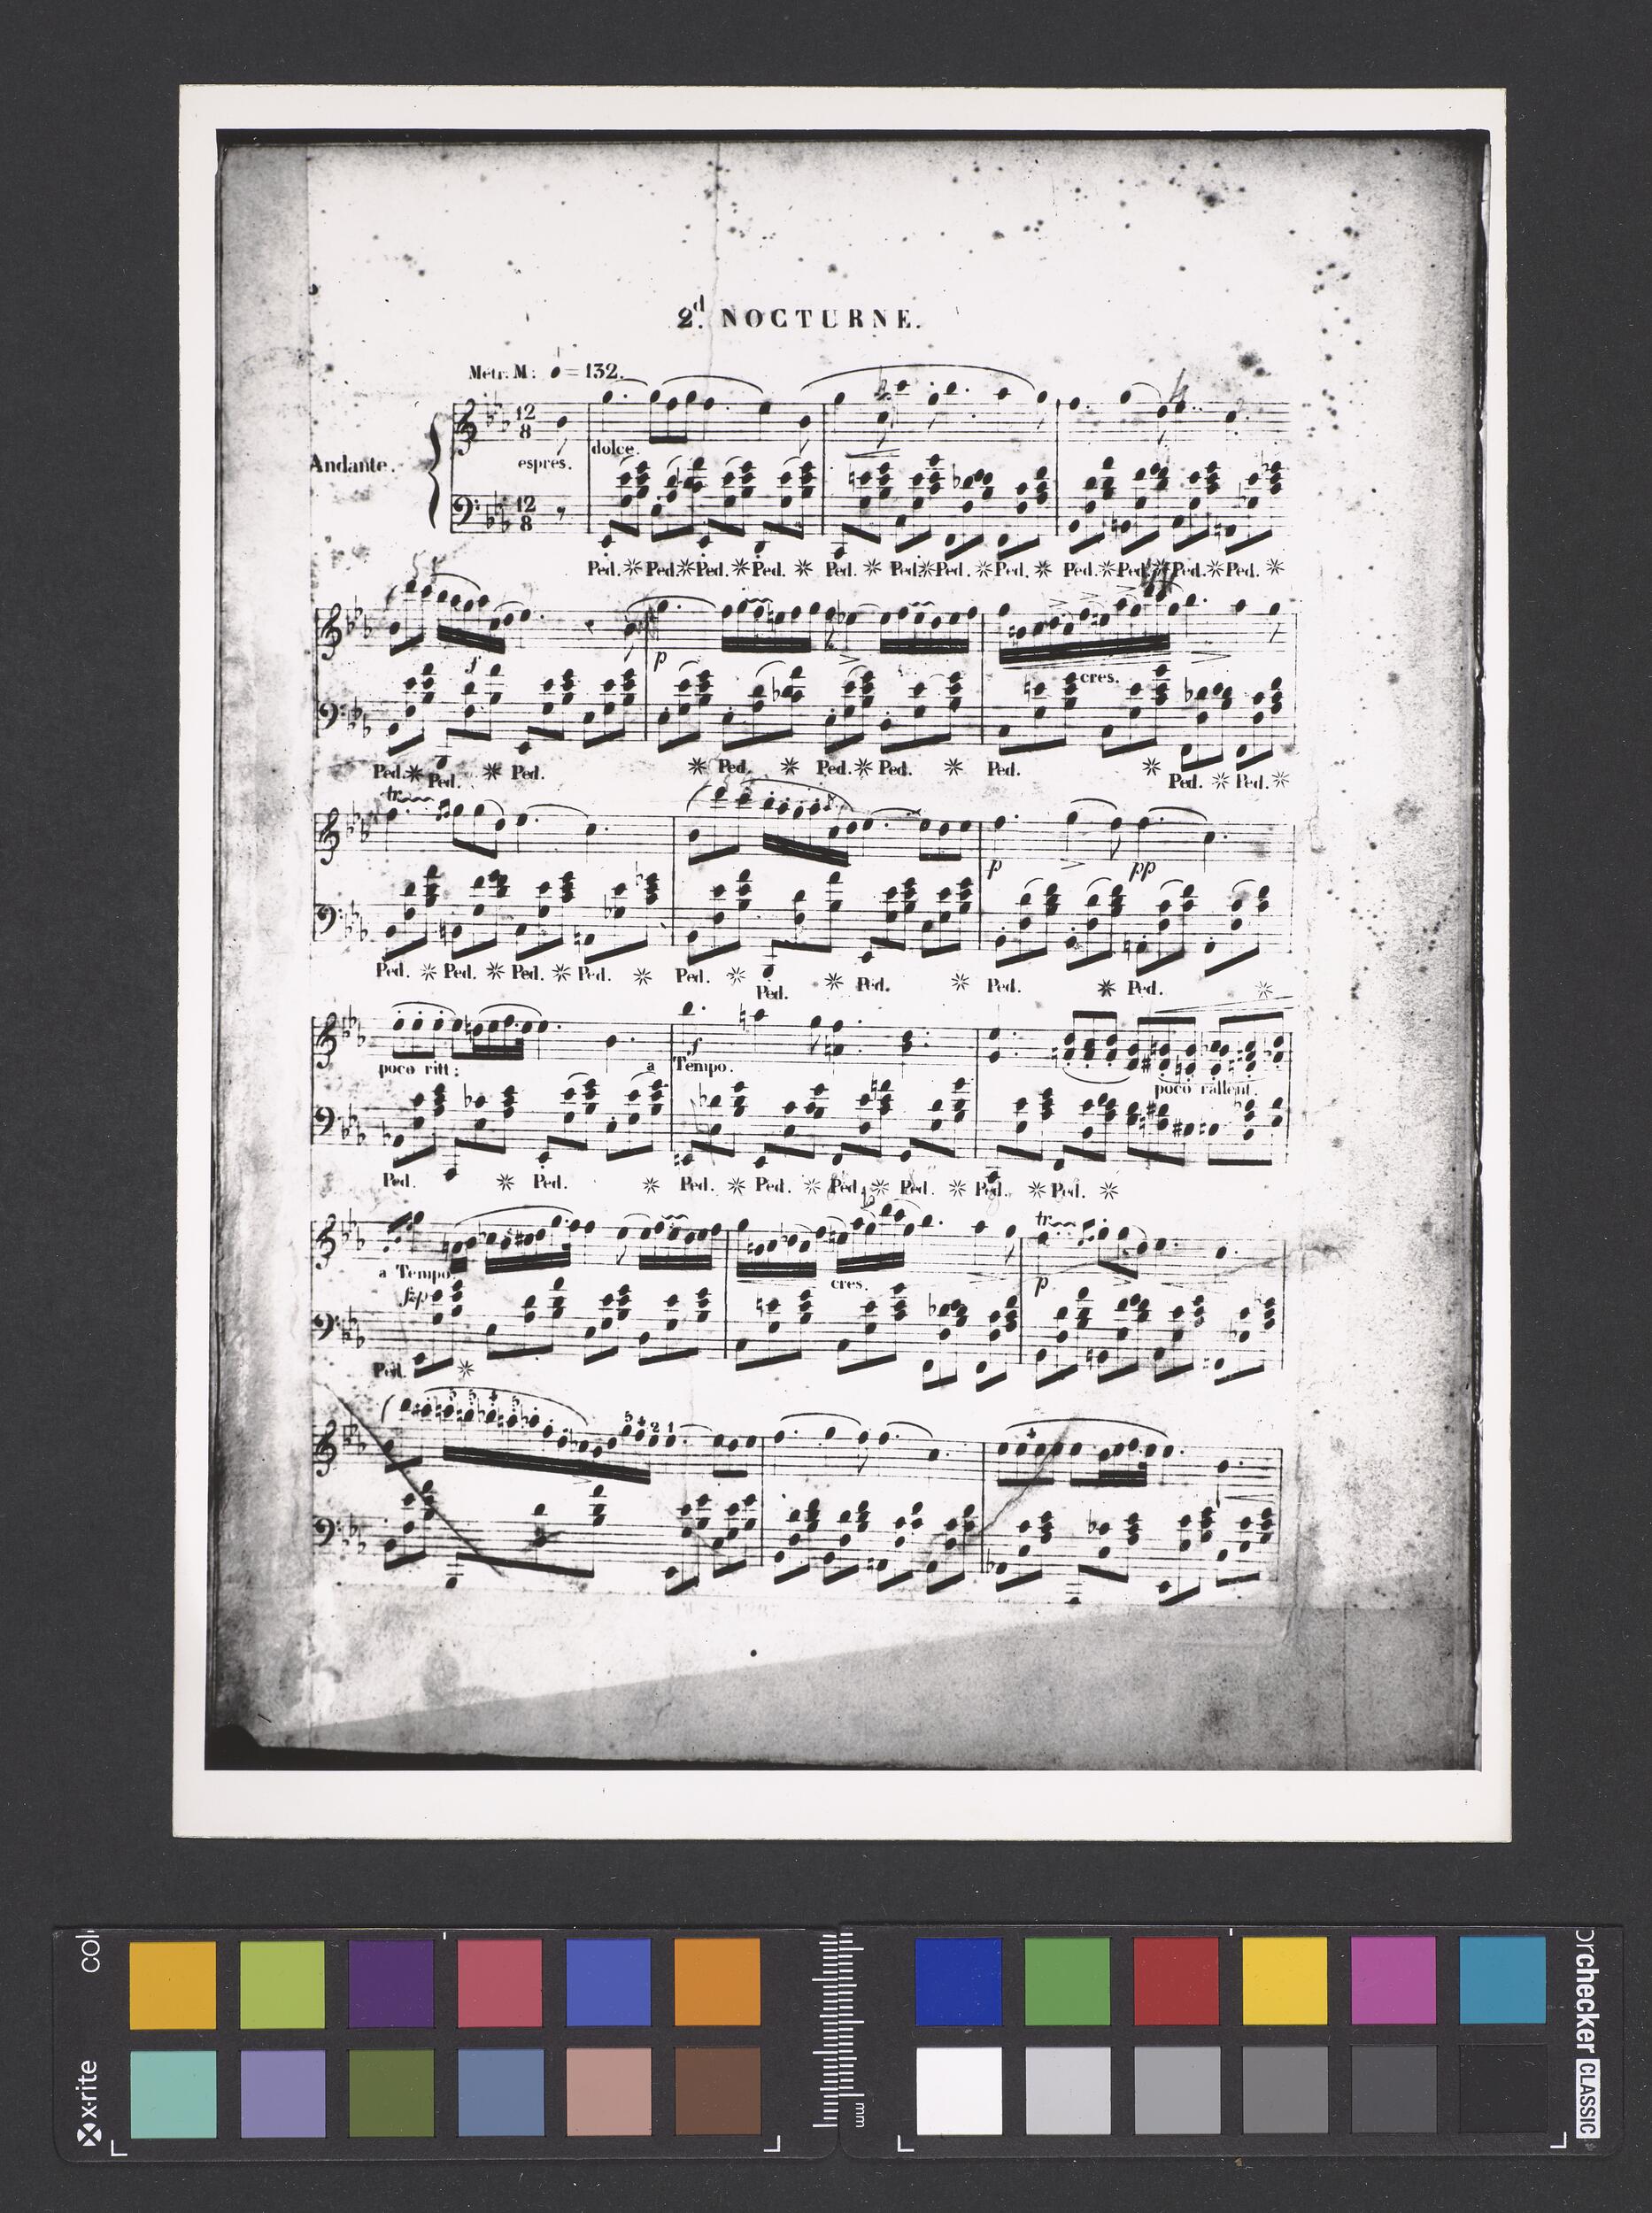 2.d NOCTURNE.
Metr: M: = 132.
Andante.
12 8
espres.
dolce.
12 8
Ped. Ped. Ped. Ped. Ped. Ped. Ped. Ped. Ped. Ped. Ped. Ped.
f
p
cres.
Ped. Ped. Ped. Ped. Ped. Ped. Ped. Ped. Ped.
tr
p pp
Ped. Ped. Ped. Ped. Ped. Ped. Ped. Ped. Ped.
poco ritt: a Tempo.
f
poco rallent.
Ped. Ped. Ped. Ped. Ped. Ped. Ped. Ped. Ped.
tr
a Tempo.
fzp
cres.
p
Ped.
5 4 2 1
4
x-rite
colorchecker CLASSIC
mm